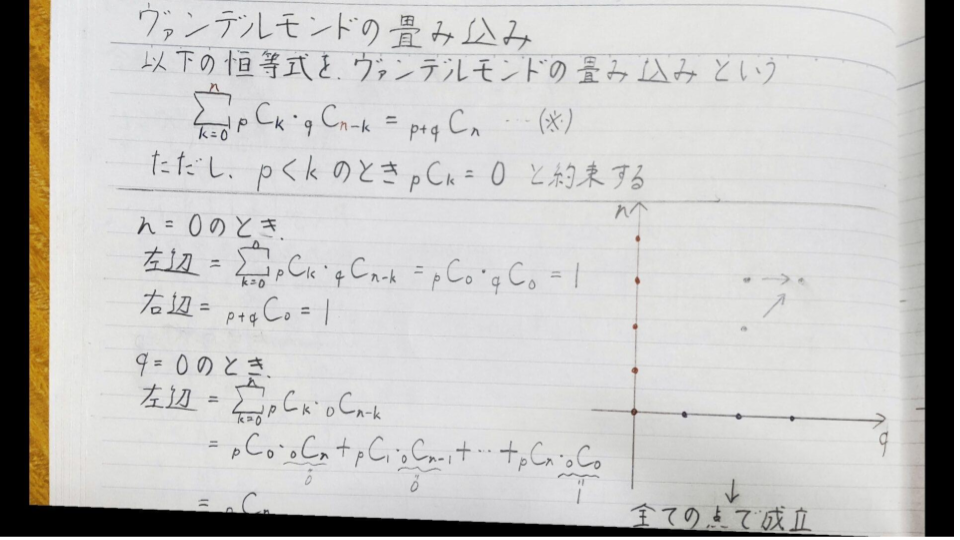 ヴァンデルモンドの畳み込み
以下の恒等式を、ヴァンデルモンドの畳み込みという
n
∑ pCk・qCn-k = p+qCn … (※)
k=0
ただし、p<kのとき pCk = 0 と約束する
n = 0のとき、
左辺 = ∑ pCk・qCn-k = pC0・qC0 = 1
右辺 = p+qC0 = 1
q = 0のとき、
左辺 = ∑ pCk・0Cn-k
= pC0・0Cn + pC1・0Cn-1 + … + pCn・0C0
0 0 1
= pCn
n
q
全ての点で成立